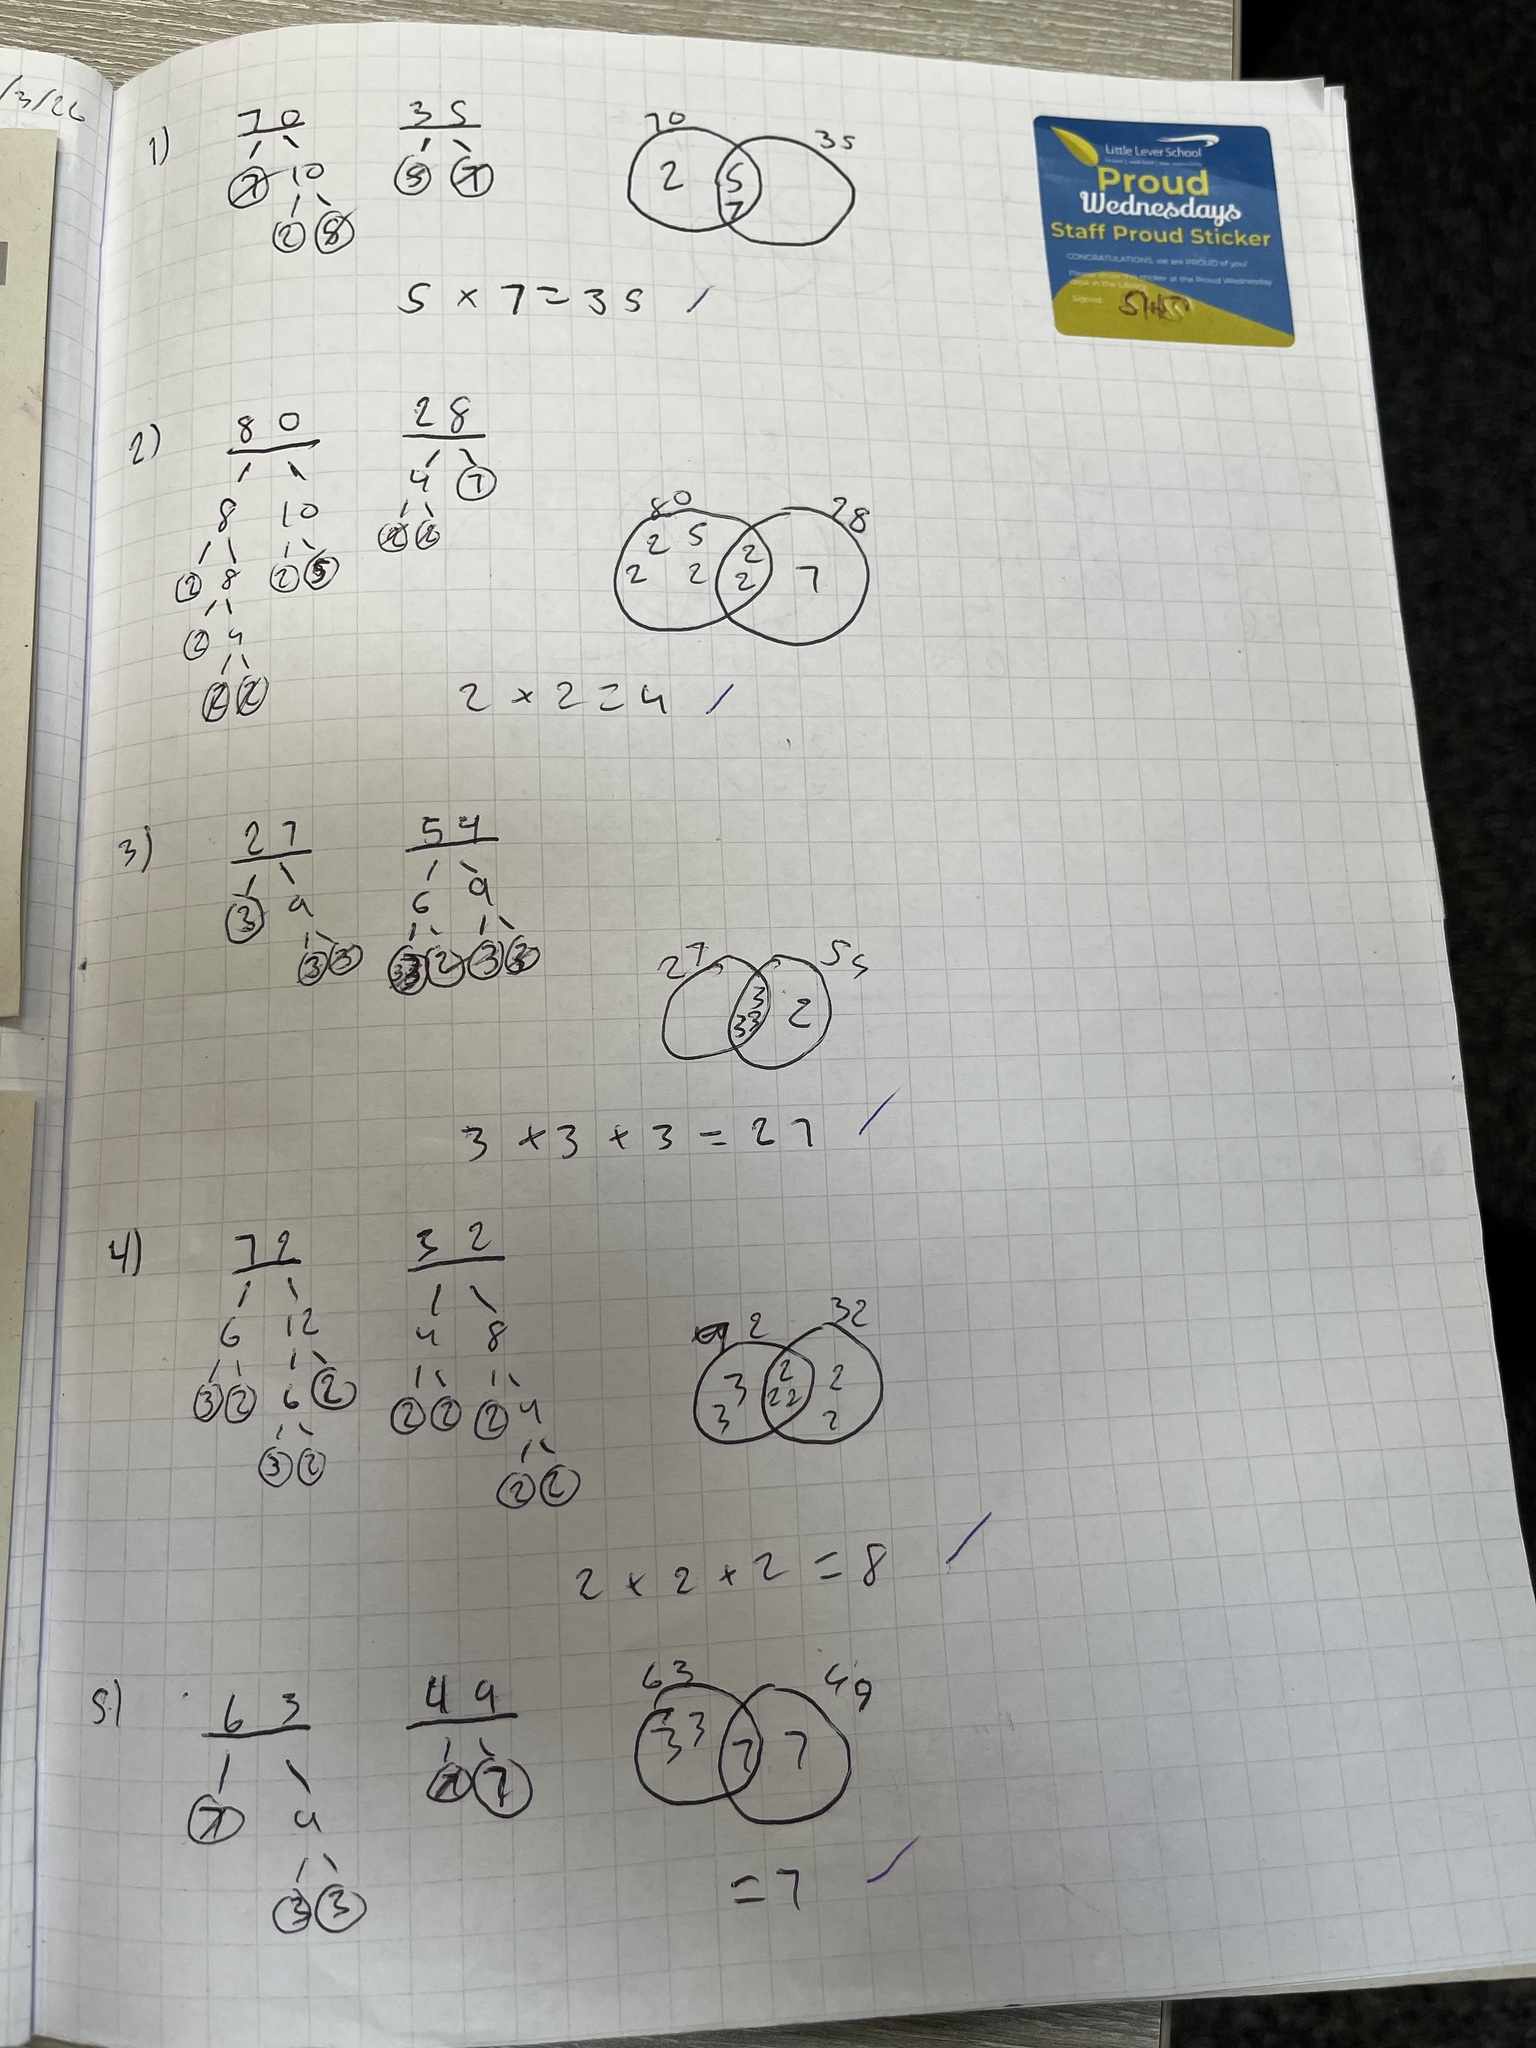 /3/26
1) 70 35
7 10 5 7
2 5
70 35
2 5 7
5 × 7 = 35
Little Lever School
Proud
Wednesdays
Staff Proud Sticker
CONGRATULATIONS, we are PROUD of you!
Please show this sticker at the Proud Wednesday
desk in the Library
Signed:
2) 80 28
4 7
8 10 2 2
2 8 2 5
2 4
2 2
80 28
2 5 2
2 2 2 7
2 × 2 = 4
3) 27 54
3 9 6 9
3 3 3 2 3 3
27 54
3 2
33
3 × 3 × 3 = 27
4) 72 32
6 12 4 8
3 2 6 2 2 2 2 4
3 2 2 2
72 32
3 2 2
3 22 2
2 × 2 × 2 = 8
5) 63 49
7 9 7 7
3 3
63 49
3 3 7 7
= 7